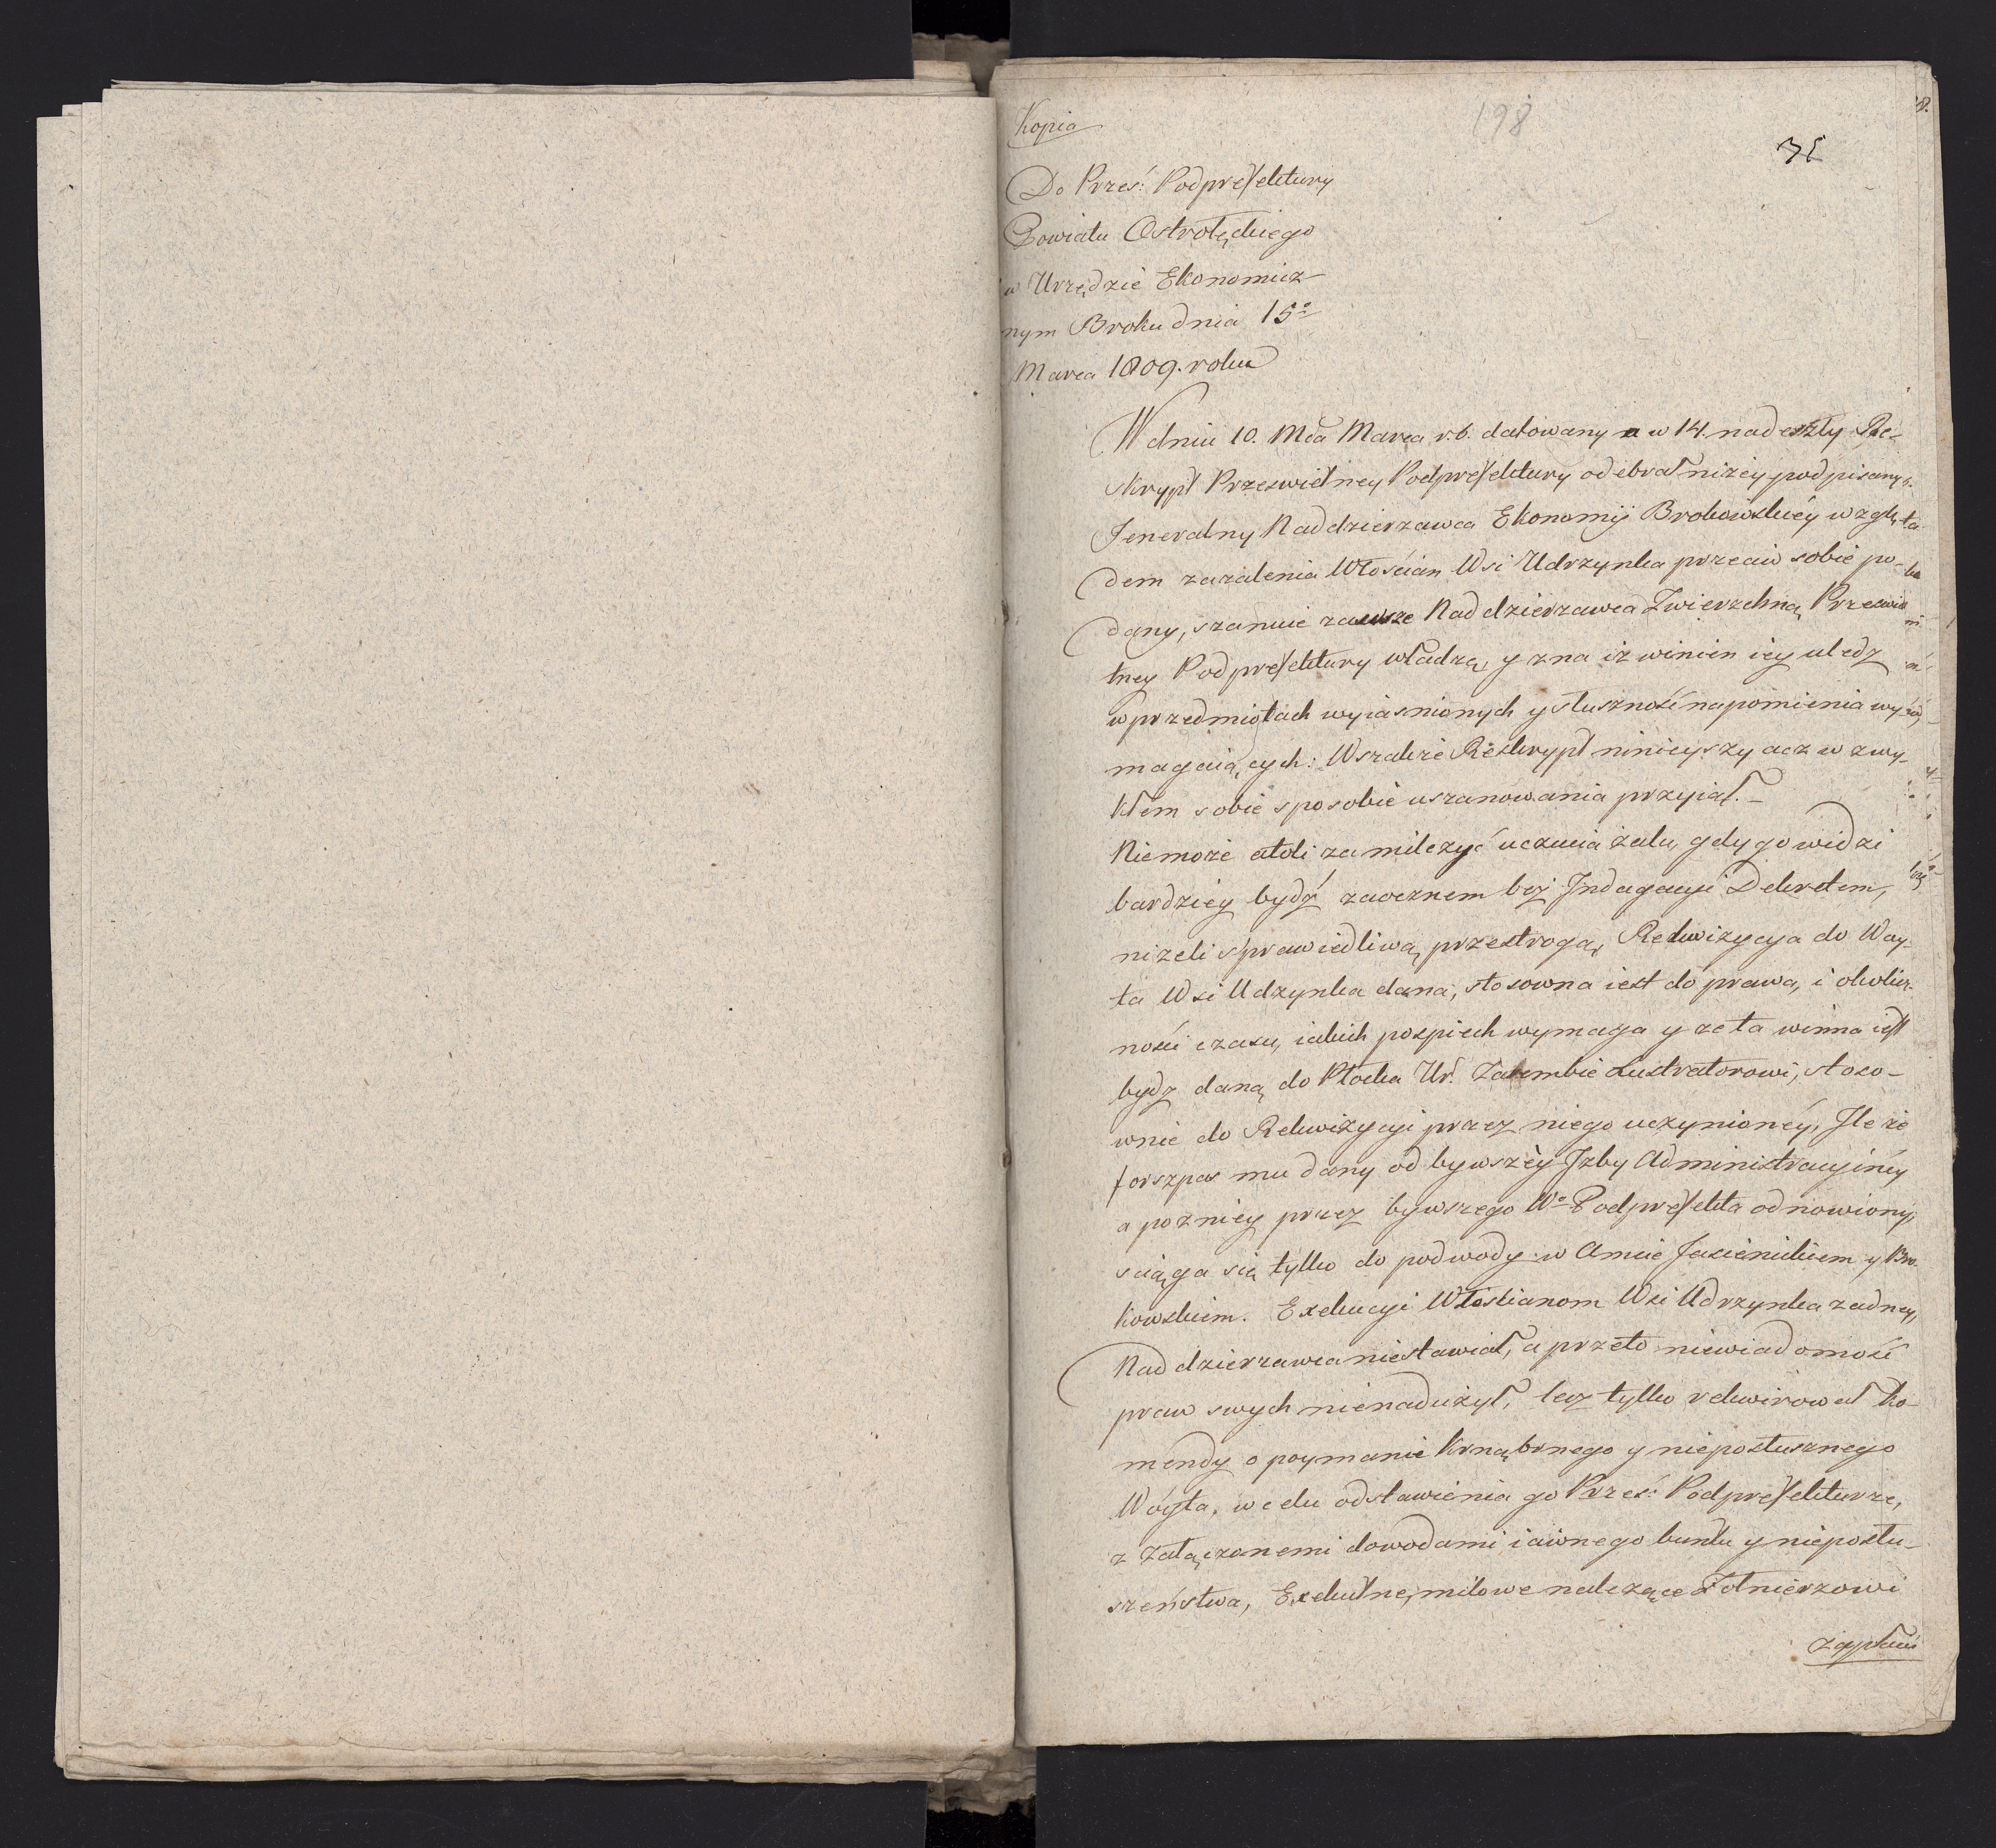 Kopia
198
Do Prześ: Podprefektury
Powiatu Ostrołęckiego
w Urzędzie Ekonomicz-
nym Broku dnia 15º
Marca 1809. roku
W dniu 10. Mca Marca r.b. datowany a w 14. nadeszły Re-
skrypt Prześwietney Podprefektury odebrał niżey podpisany
Jeneralny Naddzierzawca Ekonomij Brokowskiey wzglę-
dem zażalenia Włościan Wsi Udrzynka przeciw sobie po-
dany, szanuie zawsze Naddzierzawca Zwierzchną Przeswie
tney Podprefektury władzą, y zna iż winien iey uledz
w przedmiotach wyiasnionych y słuszność napomienia wy-
magaiących: Wszakże Reskrypt ninieyszy acz w zwy-
kłem sobie sposobie uszanowania przyiał. –
Niemoże atoli zamilczyć uczucia żalu, gdy go widzi
bardziey bydź zaocznem bez Indagacyi Dekretem,
nizeli sprawiedliwą przestrogą, Rekwizycya do Woy-
ta Wsi Udzynka dana, stosowna iest do prawa, i okolicz-
ności czasu, iakich pospiech wymaga y ze ta winna iest
bydz daną do Płocka Ur. Zarembie Lustratorowi, stoso-
wnie do Rekwizycyi przez niego uczynioney, Ile że
forszpas mu dany od bywszey Izby Administracyiney
a pozniey przez bywszego Wº Podprefekta odnowiony,
sciąga się tylko do podwody w Amcie Jasienickiem y Bro-
kowskiem. Exekucyi Włoscianom Wsi Udrzynka zadney,
Naddzierzawca niestawiał, a przeto niewiadomość
praw swych nienadużył, lecz tylko rekwirował Ko-
mendy o poymanie krnąbrnego y nieposłusznego
Woyta, w celu odstawienia go Prześ: Podprefekturze,
z załączonemi dowodami iawnego buntu y nieposłu-
szeństwa, Exekutne, milowe należące Żołnierzowi
zapłacić